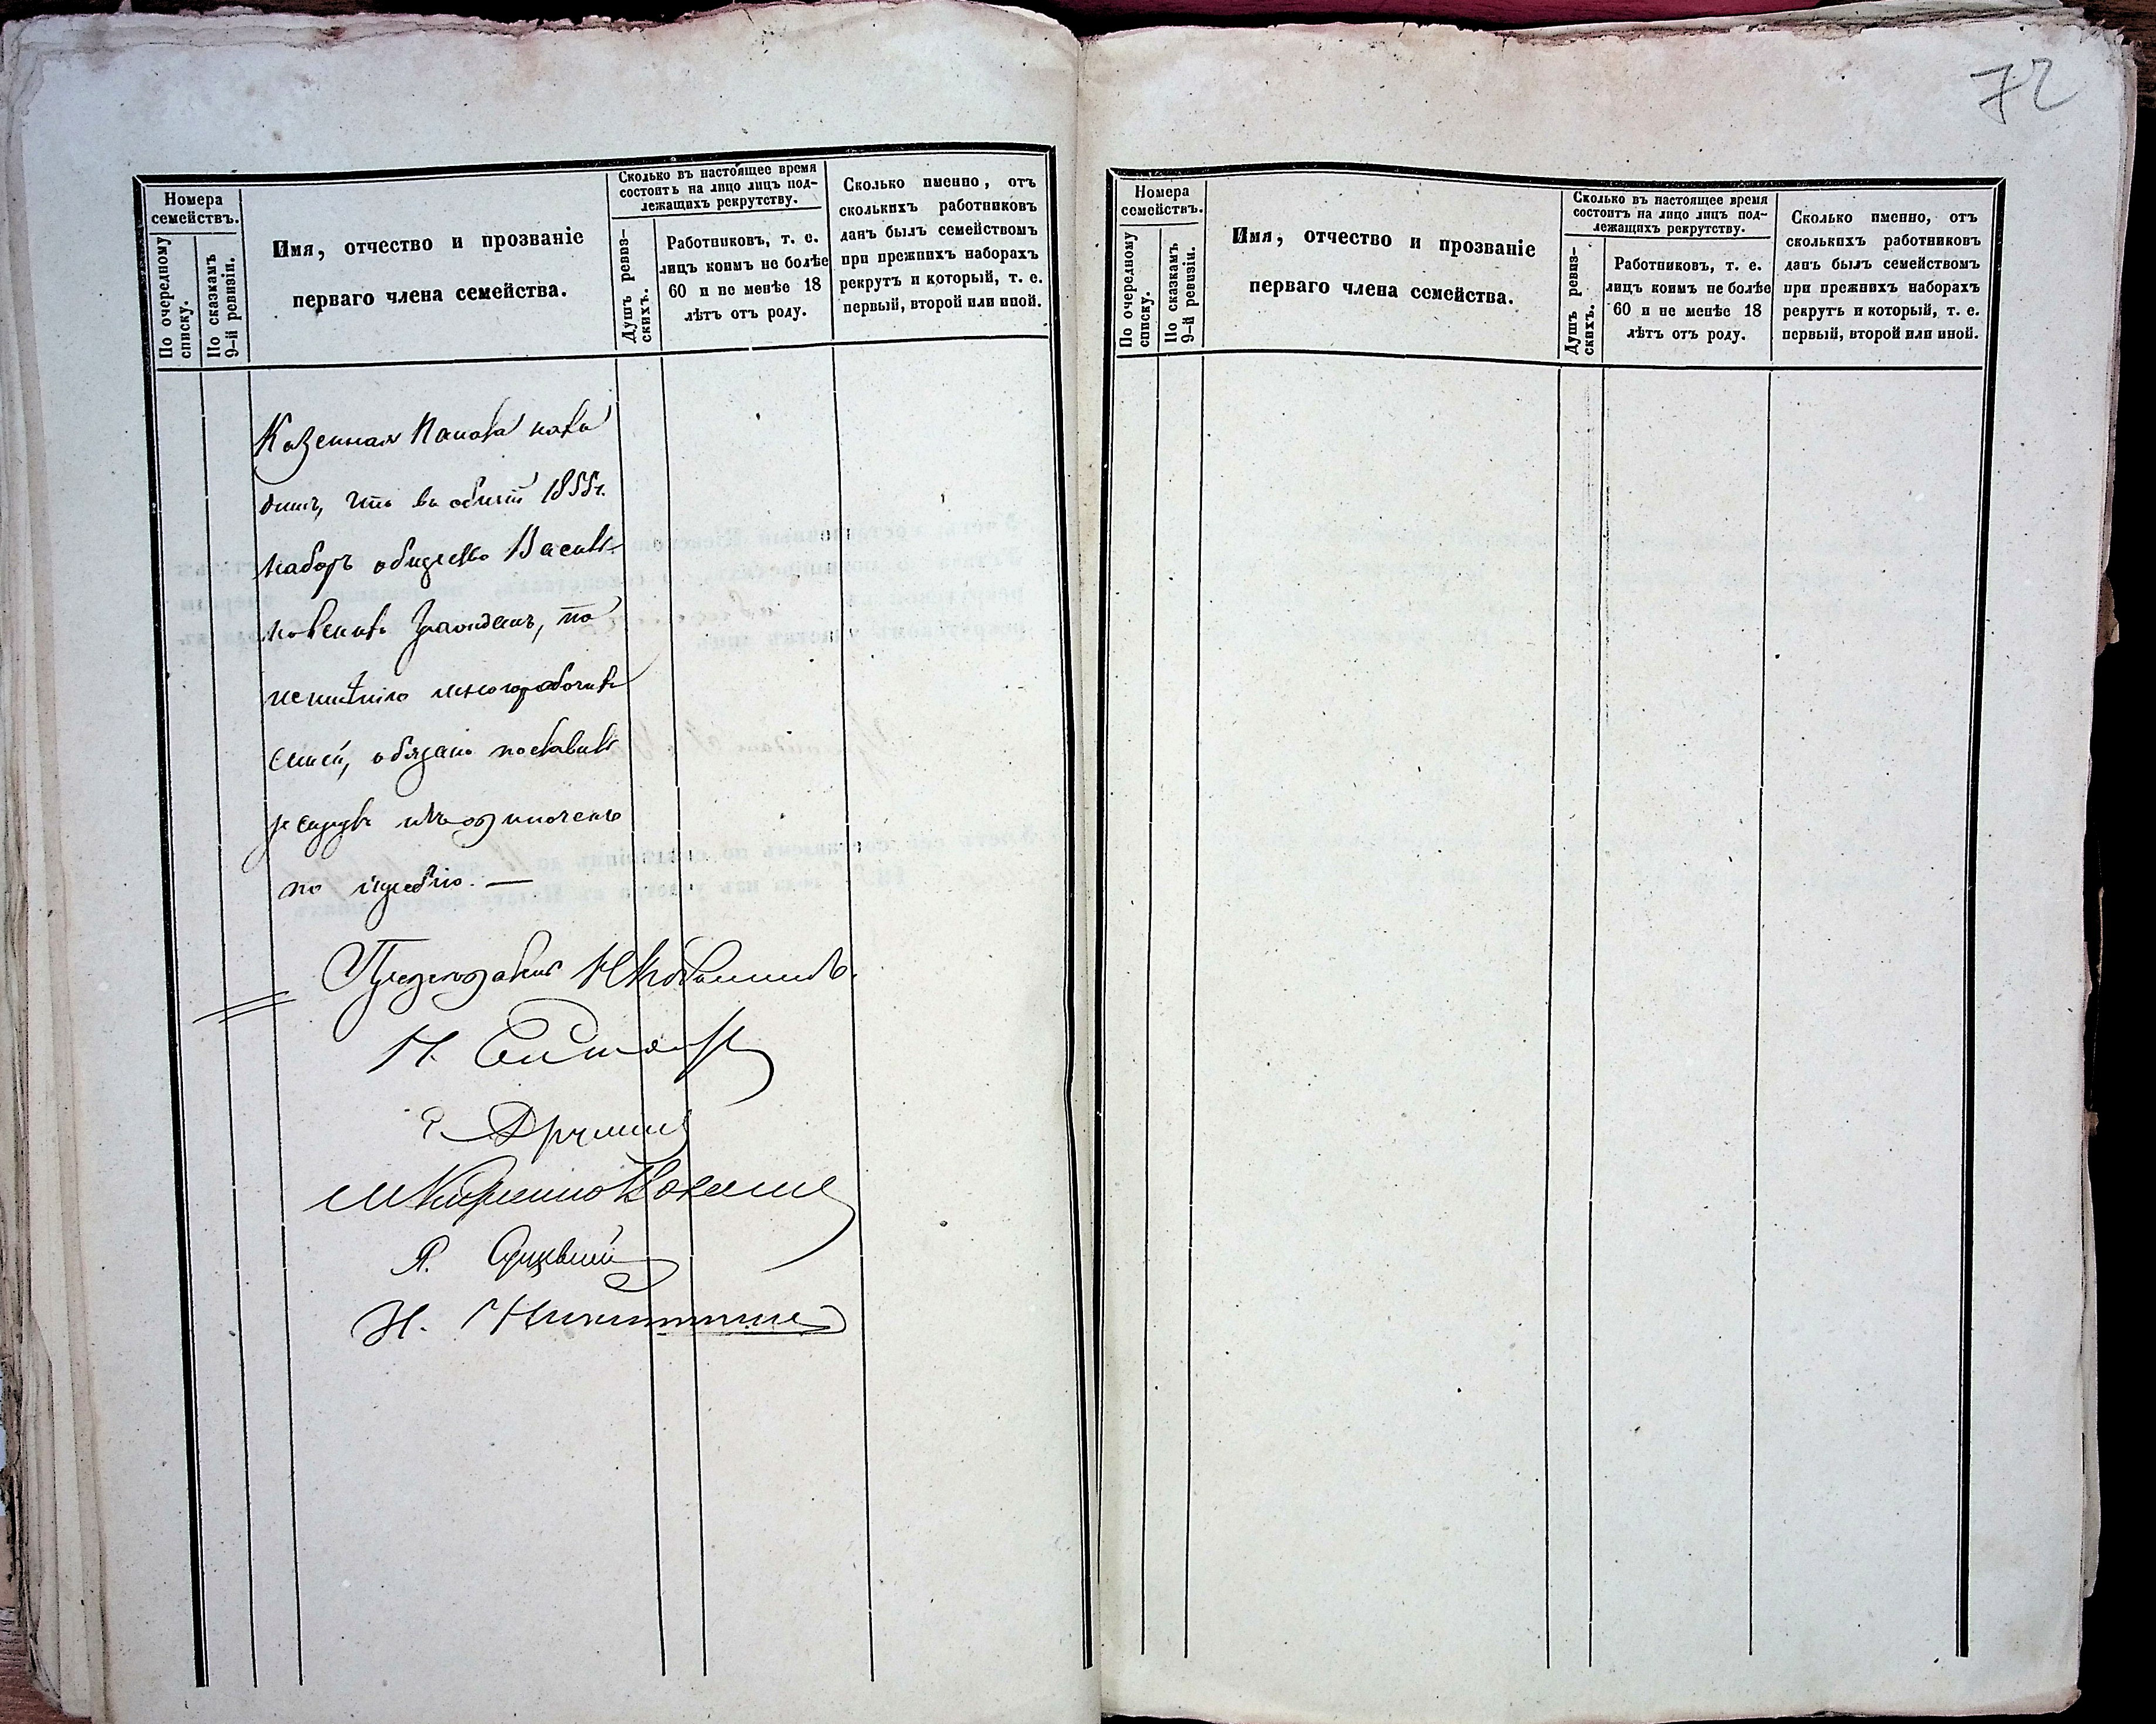 72
Номера
семействъ.
По очередному
списку.
По сказкамъ
9-й ревизіи.
Имя, отчество и прозваніе
перваго члена семейства.
Сколько въ настоящее время
состоитъ на лицо лицъ под-
лежащихъ рекрутству.
Душъ ревиз-
скихъ.
Работниковъ, т. е.
лицъ коимъ не болѣе
60 и не менѣе 18
лѣтъ отъ роду.
Сколько именно, отъ
сколькихъ работниковъ
данъ былъ семействомъ
при прежнихъ наборахъ
рекрутъ и который, т. е.
первый, второй или иной.
Казенная Палата нахо
дитъ, что въ 1855 г.
наборъ общество Василь
ковскихъ гражданъ, по
неимѣнію многорабочихъ
семей, обязано поставить
рекрутъ изъ одиночекъ
по жребію. —
Предсѣдатель
Н.
М
Я.
Н.
Номера
семействъ.
По очередному
списку.
По сказкамъ
9-й ревизіи.
Имя, отчество и прозваніе
перваго члена семейства.
Сколько въ настоящее время
состоитъ на лицо лицъ под-
лежащихъ рекрутству.
Душъ ревиз-
скихъ.
Работниковъ, т. е.
лицъ коимъ не болѣе
60 и не менѣе 18
лѣтъ отъ роду.
Сколько именно, отъ
сколькихъ работниковъ
данъ былъ семействомъ
при прежнихъ наборахъ
рекрутъ и который, т. е.
первый, второй или иной.